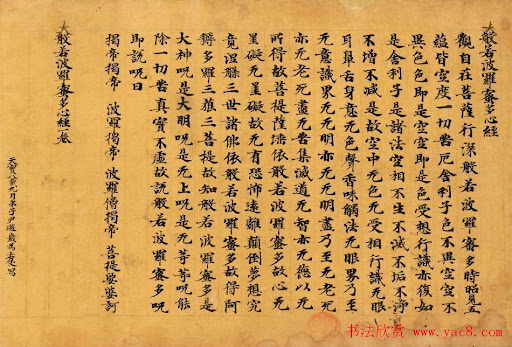 大般若波羅蜜多心經
觀自在菩薩行深般若波羅蜜多時照見五
蘊皆空度一切苦厄舍利子色不異空空不
異色色即是空空即是色受想行識亦復如
是舍利子是諸法空相不生不滅不垢不淨
不增不減是故空中无色无受相行識无眼
耳鼻舌身意无色聲香味觸法无眼界乃至
无意識界无无明亦无无明盡乃至无老死
亦无老死盡无苦集滅道无智亦无德以无
所得故菩提薩埵依般若波羅蜜多故心无
罣礙无罣礙故无有恐怖遠離顛倒夢想究
竟涅槃三世諸佛依般若波羅蜜多故得阿
耨多羅三藐三菩提故知般若波羅蜜多是
大神呪是大明呪是无上呪是无等等呪能
除一切苦真實不虛故說般若波羅蜜多呪
即說呪曰
揭帝揭帝 波羅揭帝 波羅僧揭帝 菩提娑婆訶
大般若波羅蜜多心經一卷
天寶八載九月弟子尹遊巖
书法欣赏
www.yac8.com